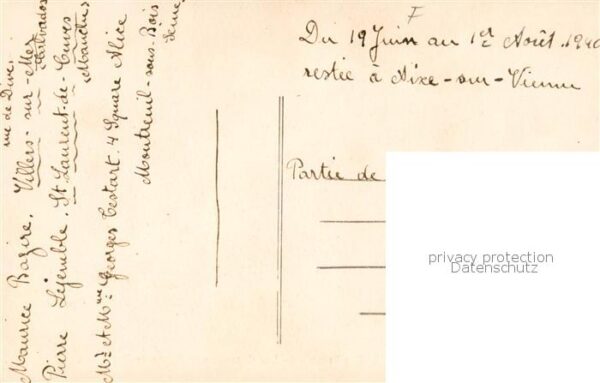 Maurice Bazire. Villers-sur-Mer
rue de Dive. Calvados
Pierre Lejemble. St Laurent-de-Cuves
Manche
Mr et Mme Georges Testart. 4 Square Alice
Montreuil-sous-Bois
Seine
F
Du 19 Juin au 1er Août 1940
restée à Aixe-sur-Vienne
Partie de
privacy protection
Datenschutz